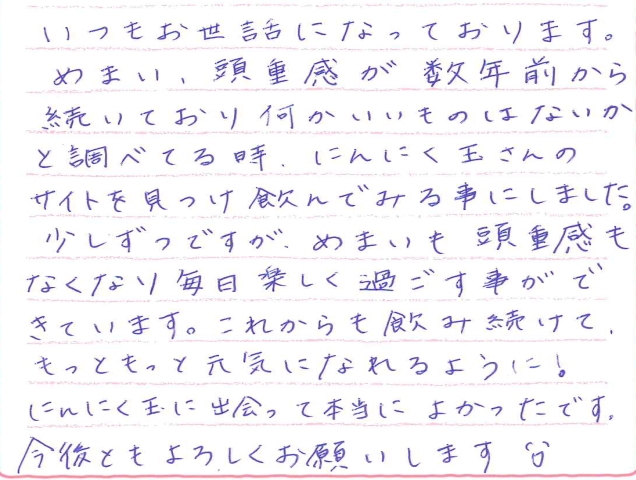 いつもお世話になっております。
めまい、頭重感が数年前から
続いており何かいいものはないか
と調べてる時、にんにく玉さんの
サイトを見つけ飲んでみる事にしました。
少しずつですが、めまいも頭重感も
なくなり毎日楽しく過ごす事がで
きています。これからも飲み続けて、
もっともっと元気になれるように！
にんにく玉に出会って本当によかったです。
今後ともよろしくお願いします